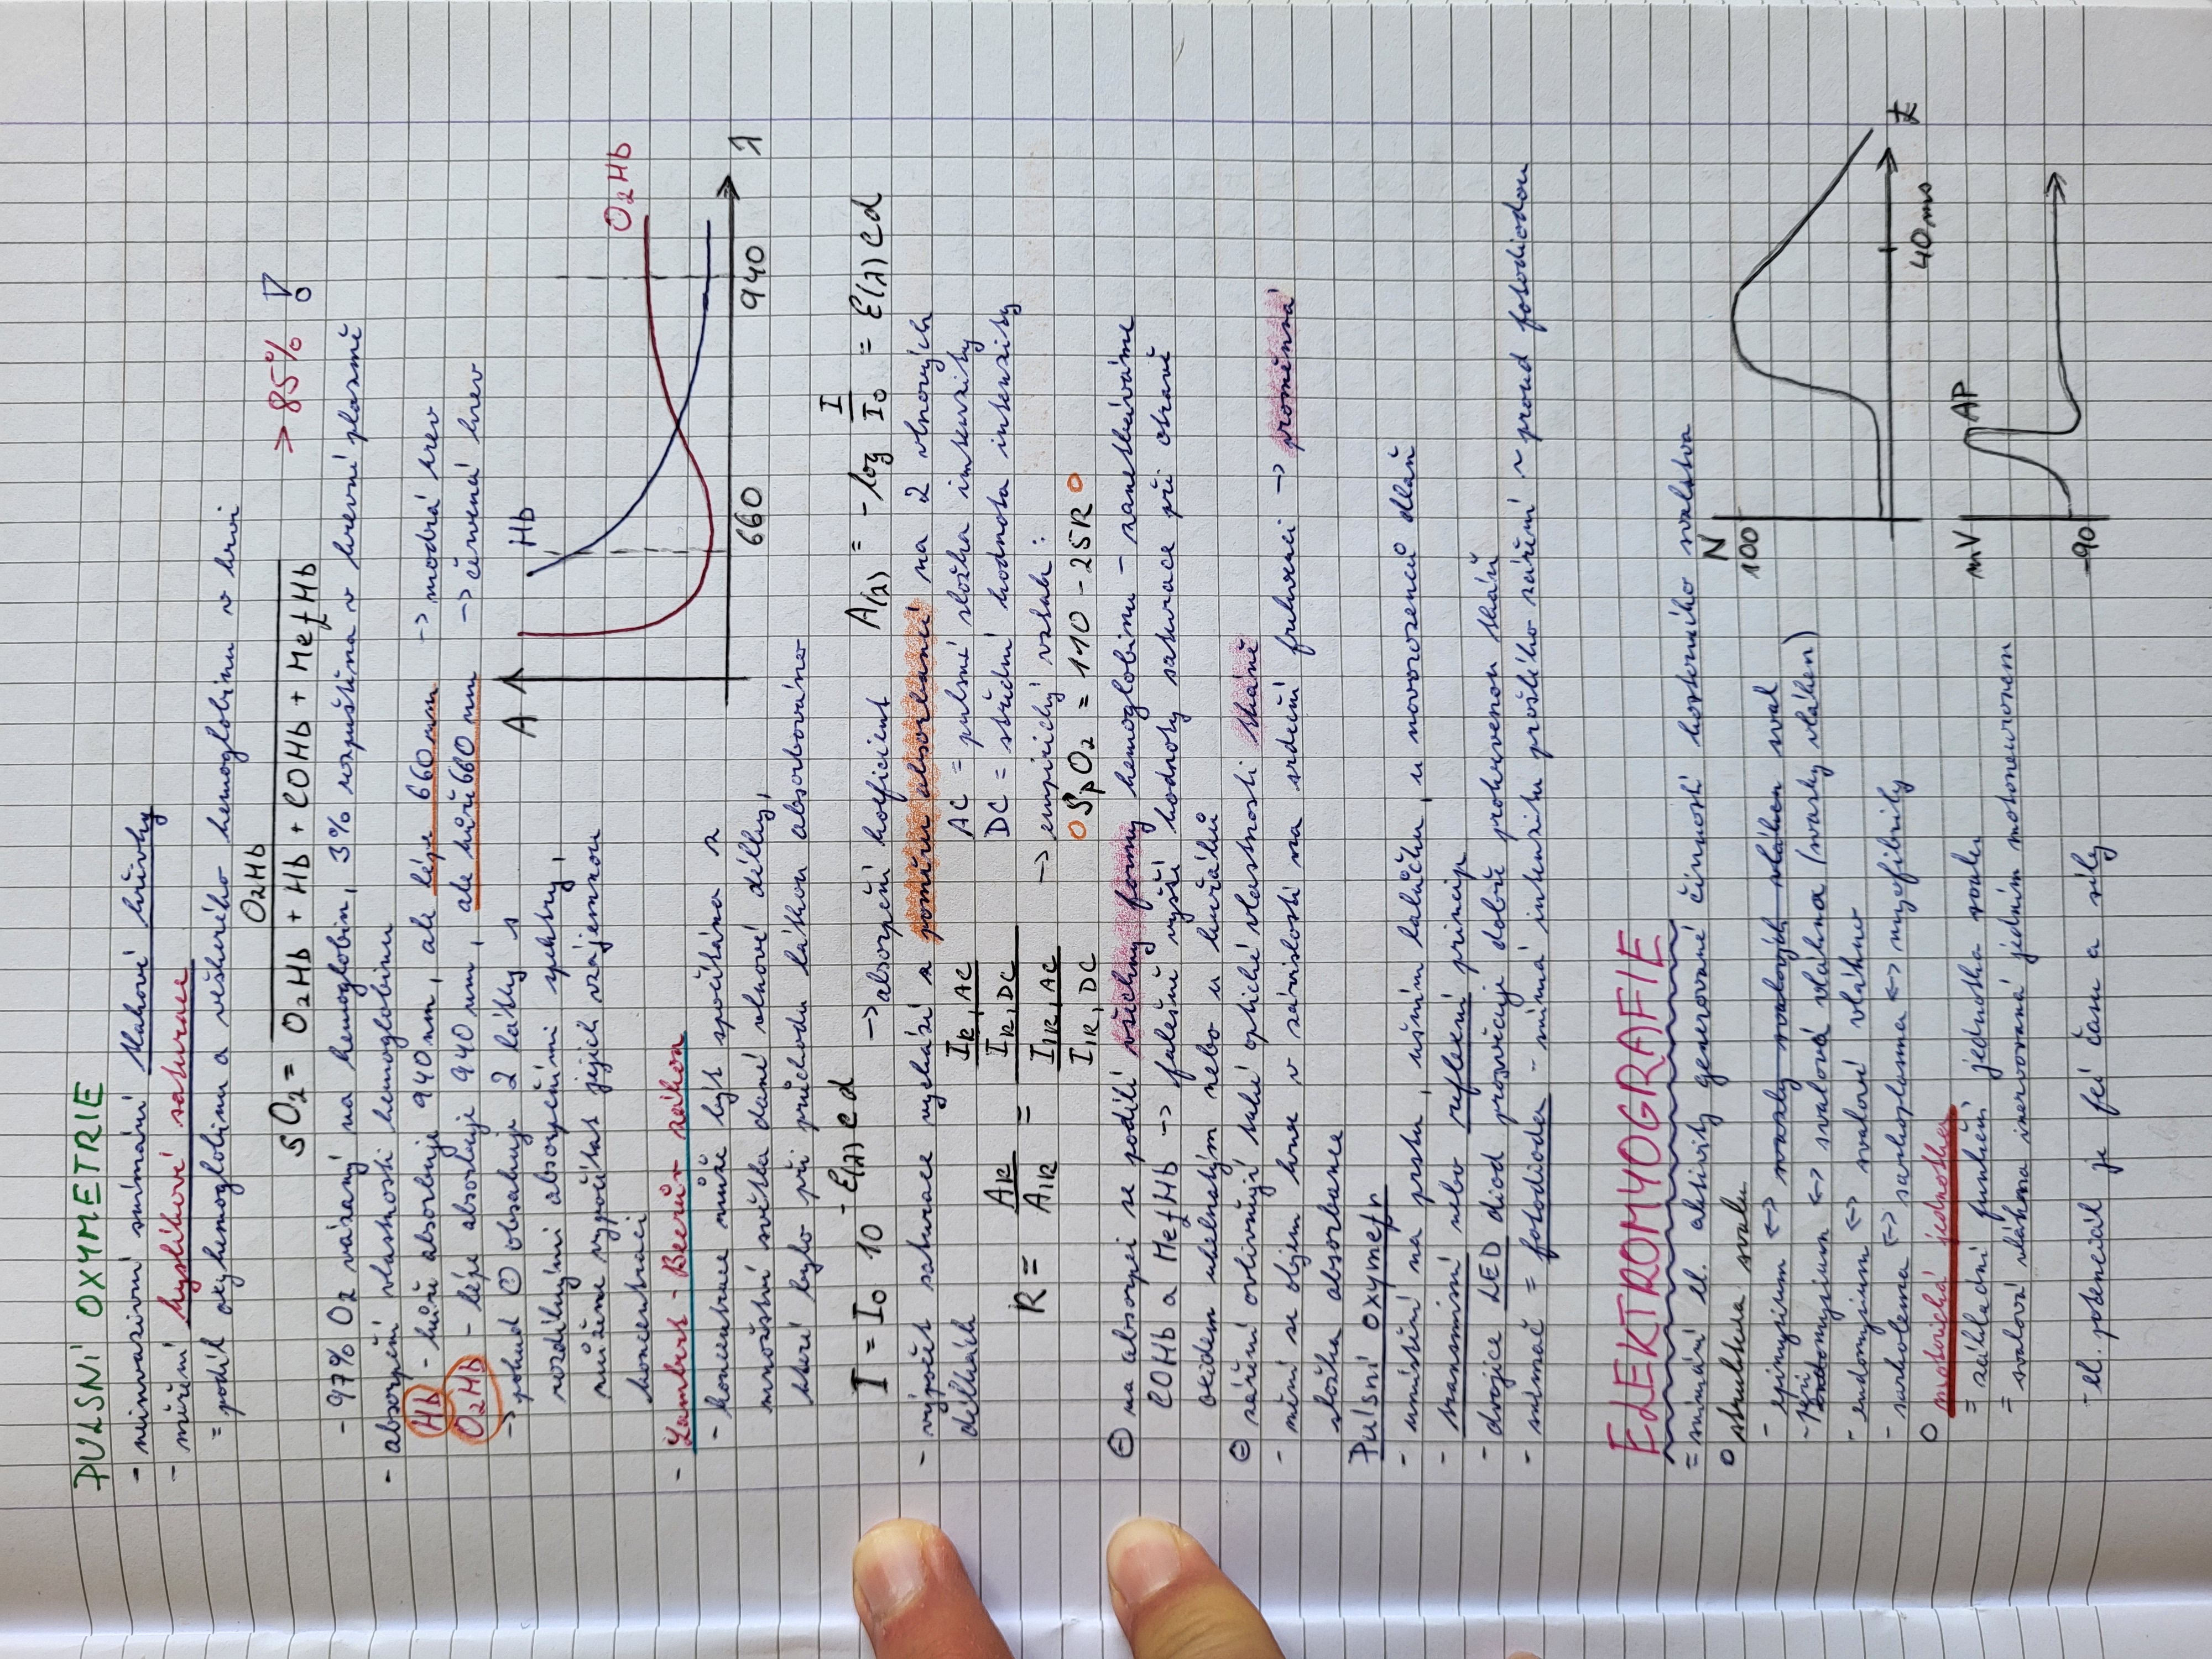 PULSNÍ OXYMETRIE
- neinvazivní snímání tlakové křivky
- měření kyslíkové saturace
= podíl oxyhemoglobinu a veškerého hemoglobinu v krvi
sO₂ = O₂Hb / (O₂Hb + Hb + COHb + MetHb) > 85% !
- 97% O₂ vázaný na hemoglobin, 3% rozpuštěna v krevní plazmě
- absorpční vlastnosti hemoglobinu
Hb - hůře absorbuje 940 nm, ale lépe 660 nm → modrá krev
O₂Hb - lépe absorbuje 940 nm, ale hůře 660 nm → červená krev
→ pokud obsahuje 2 látky s
rozdílnými absorpčními spektry,
můžeme vypočítat jejich vzájemnou
koncentraci
A Hb O₂Hb
660 940 λ
- Lambert - Beerův zákon
- koncentrace může být spočítána z
množství světla dané vlnové délky,
které bylo při průchodu látkou absorbováno
I = I₀ 10^-ε(λ)cd → absorpční koeficient A(λ) = -log I/I₀ = ε(λ)cd
- výpočet saturace vychází z poměru absorbancí na 2 vlnových
délkách
AC = pulsné složka intenzity
DC = střední hodnota intenzity
R = A_R / A_IR = (I_R,AC / I_R,DC) / (I_IR,AC / I_IR,DC)
→ empirický vztah :
SpO₂ = 110 - 25R
⊖ na absorpci se podílí všechny formy hemoglobinu - zanedbáváme
COHb a MetHb → falešně vyšší hodnoty saturace při otravě
oxidem uhelnatým nebo u kuřáků
⊖ záření ovlivňují také optické vlastnosti tkáně
- mění se objem krve v závislosti na srdeční frekvenci → proměnná
složka absorbance
Pulsní oxymetr
- umístění na prstu, ušním lalůčku, u novorozenců dlaň
- transmisní nebo reflexní princip
- dvojice LED diod prosvěcuje dobře prokrvenou tkáň
- snímač = fotodioda - snímá intenzitu prošlého záření ~ proud fotodiodou
ELEKTROMYOGRAFIE
= snímání el. aktivity generované činností kosterního svalstva
o struktura svalu
- epimysium ↔ svazky svalových vláken sval
- perimysium ↔ svalová vlákna (svazky vláken)
- endomysium ↔ svalové vlákno
- sarkolema ↔ sarkoplasma ↔ myofibrily
N
100
40 ms t
o motorická jednotka
= základní funkční jednotka svalu
= svalová vlákna inervovaná jedním motoneuronem
- el. potenciál je fcí času a síly
mV AP
-90